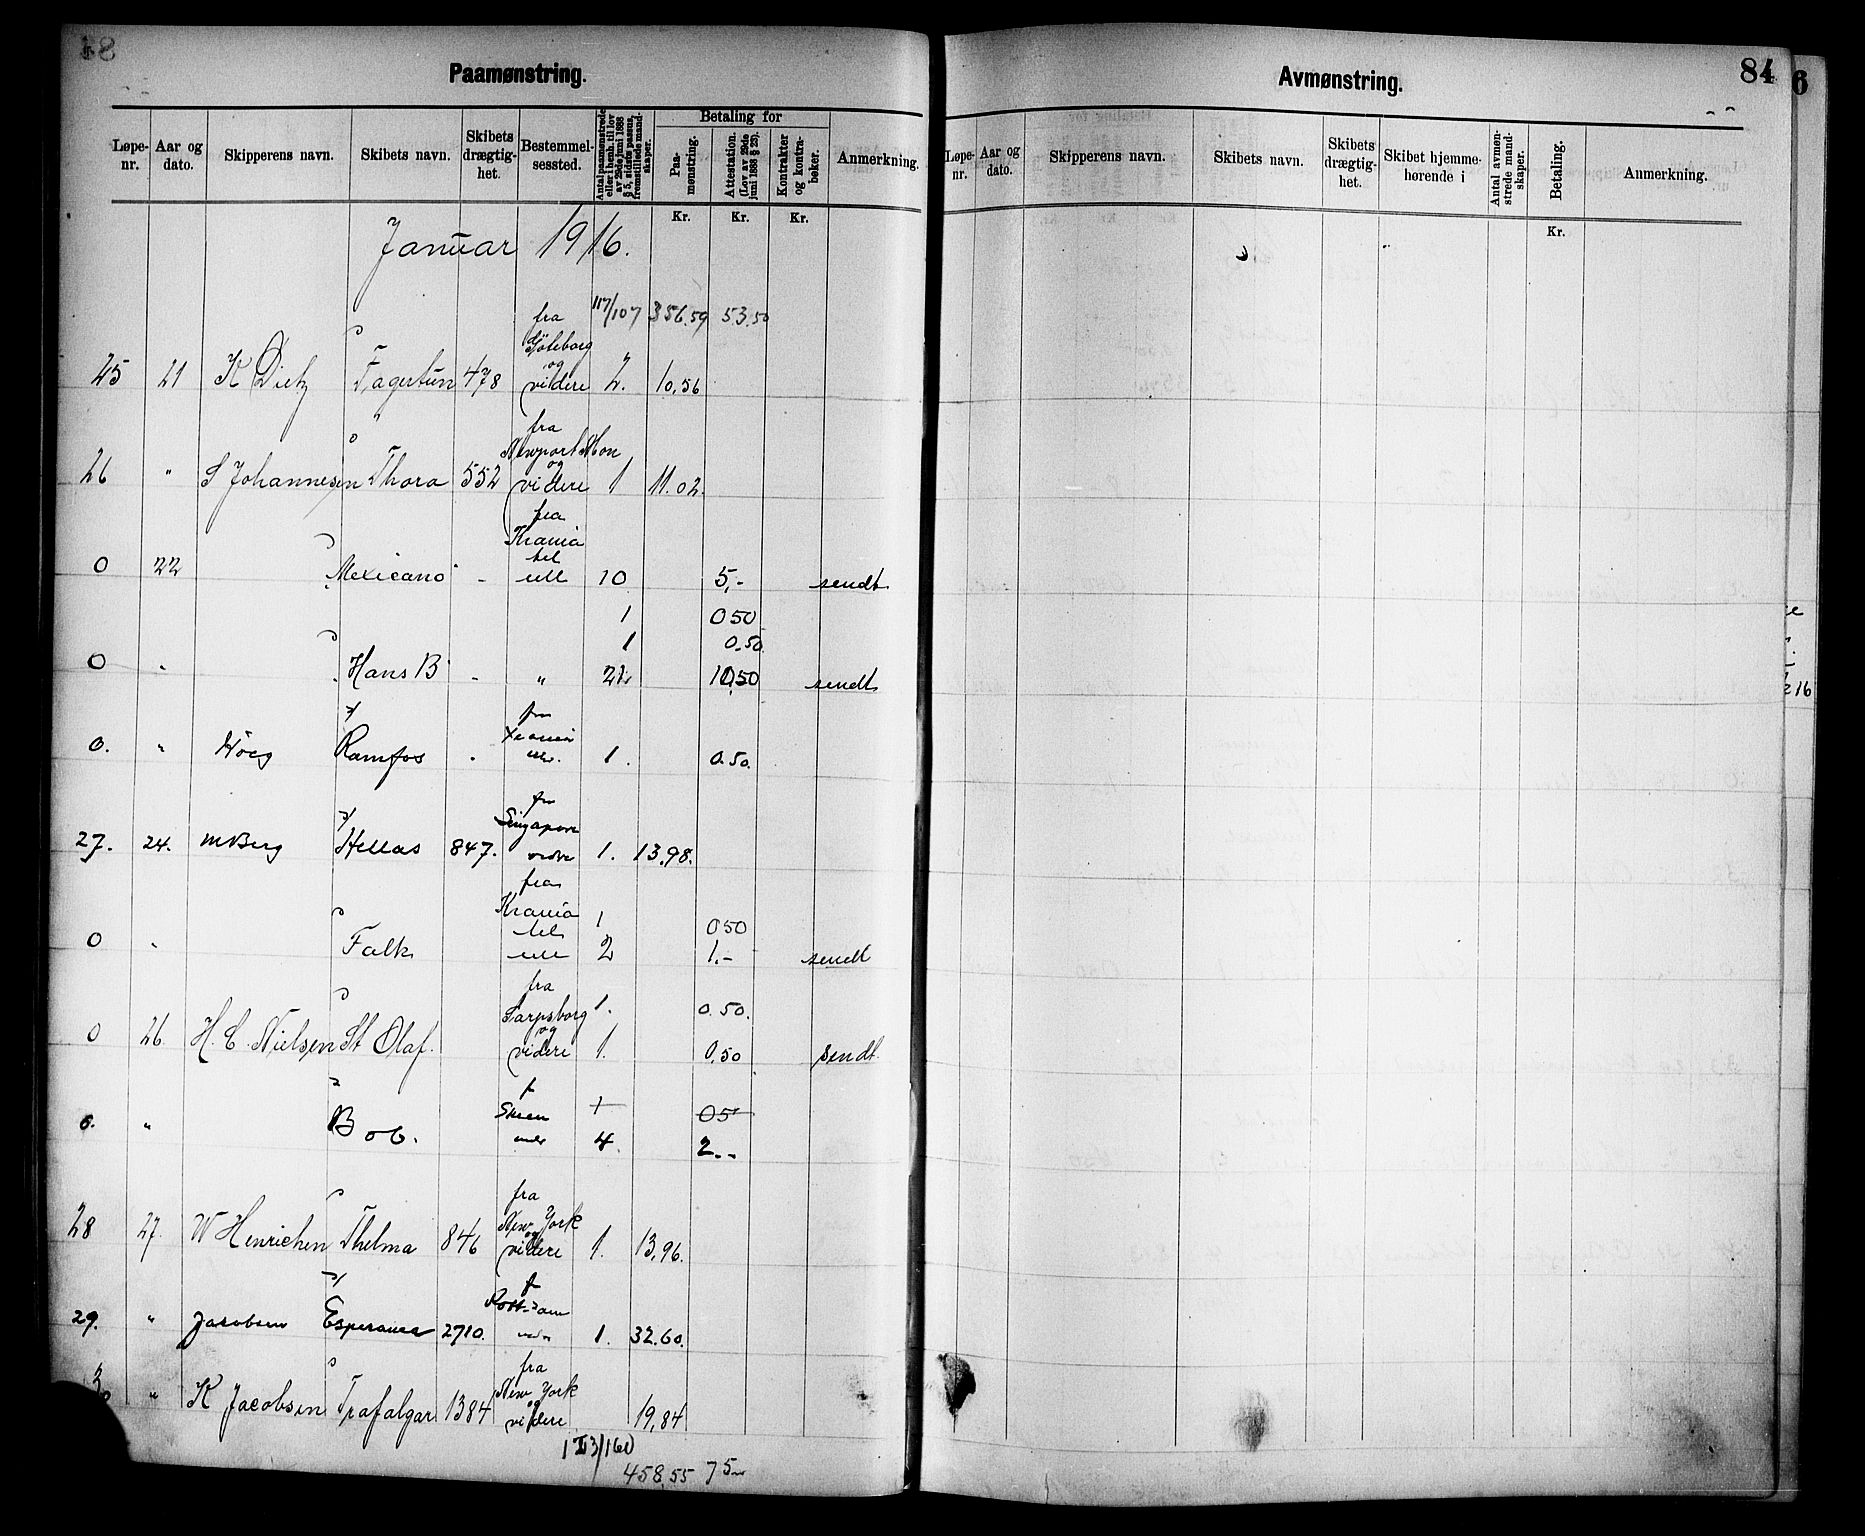 Paamønstring.
Løpe-nr. Aar og dato. Skipperens navn. Skibets navn. Skibets drægtig-het. Bestemmel-sessted. Antal paamønstrede eller i henh. til lov av 29de juni 1888 § 5, sidste passus, fremstillede mand-skaper. Betaling for Paa-mønstring. Attestation. (Lov av 29de juni 1888 § 23). Kontrakter og kontra-bøker. Anmerkning.
Kr. Kr. Kr.
Januar 1916.
117/107 356.59 53.50
25 21 K Dietz Fagertun 478 fra Göteborg og videre 2. 10,56
26 " S Johannesen Thora 552 fra Newport Mon og videre 1 11.02.
0 22 Mexicano - fra Krania tel 10 5,- sendt
1 0 50
1 0.50
0 " Hans B - " 21 10,50 sendt
0. " Höeg Ramfos . 1. 0.50.
27. 24. M Berg Hellas 847. fra Singapore 1. 13,98.
0 " Falk fra Krania tel 1 0 50
2 1.- sendt
0 26 H. C. Nielsen St Olaf. fra Sarpsborg og videre 1. 0.50.
1. 0,50 sendt.
0. " Bob. f Skien 1 05
4. 2.-
28 27. W Henrichsen Thelma 846 fra New York og videre 1. 13,96.
29. " Jacobsen Esperance 2710. f 1. 32.60.
30 " K Jacobsen Trafalgar 1384 fra New York og videre 19,84
458,55 75
84
Avmønstring.
Løpe-nr. Aar og dato. Skipperens navn. Skibets navn. Skibets drægtig-het. Skibet hjemme-hørende i Antal avmøn-strede mand-skaper. Betaling. Anmerkning.
Kr.
6
16